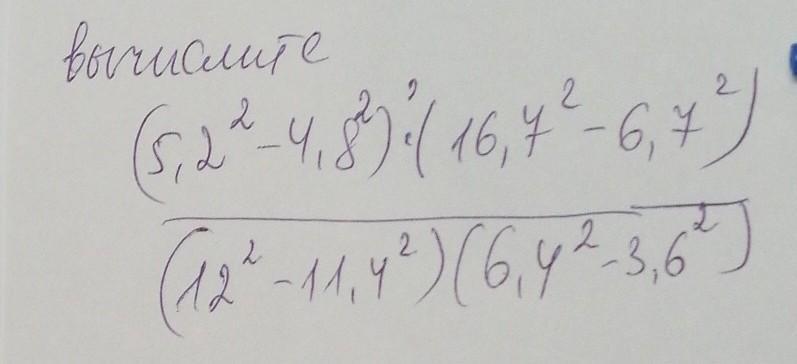 вычислите
(5,2²-4,8²)·(16,7²-6,7²)
(12²-11,4²)(6,4²-3,6²)